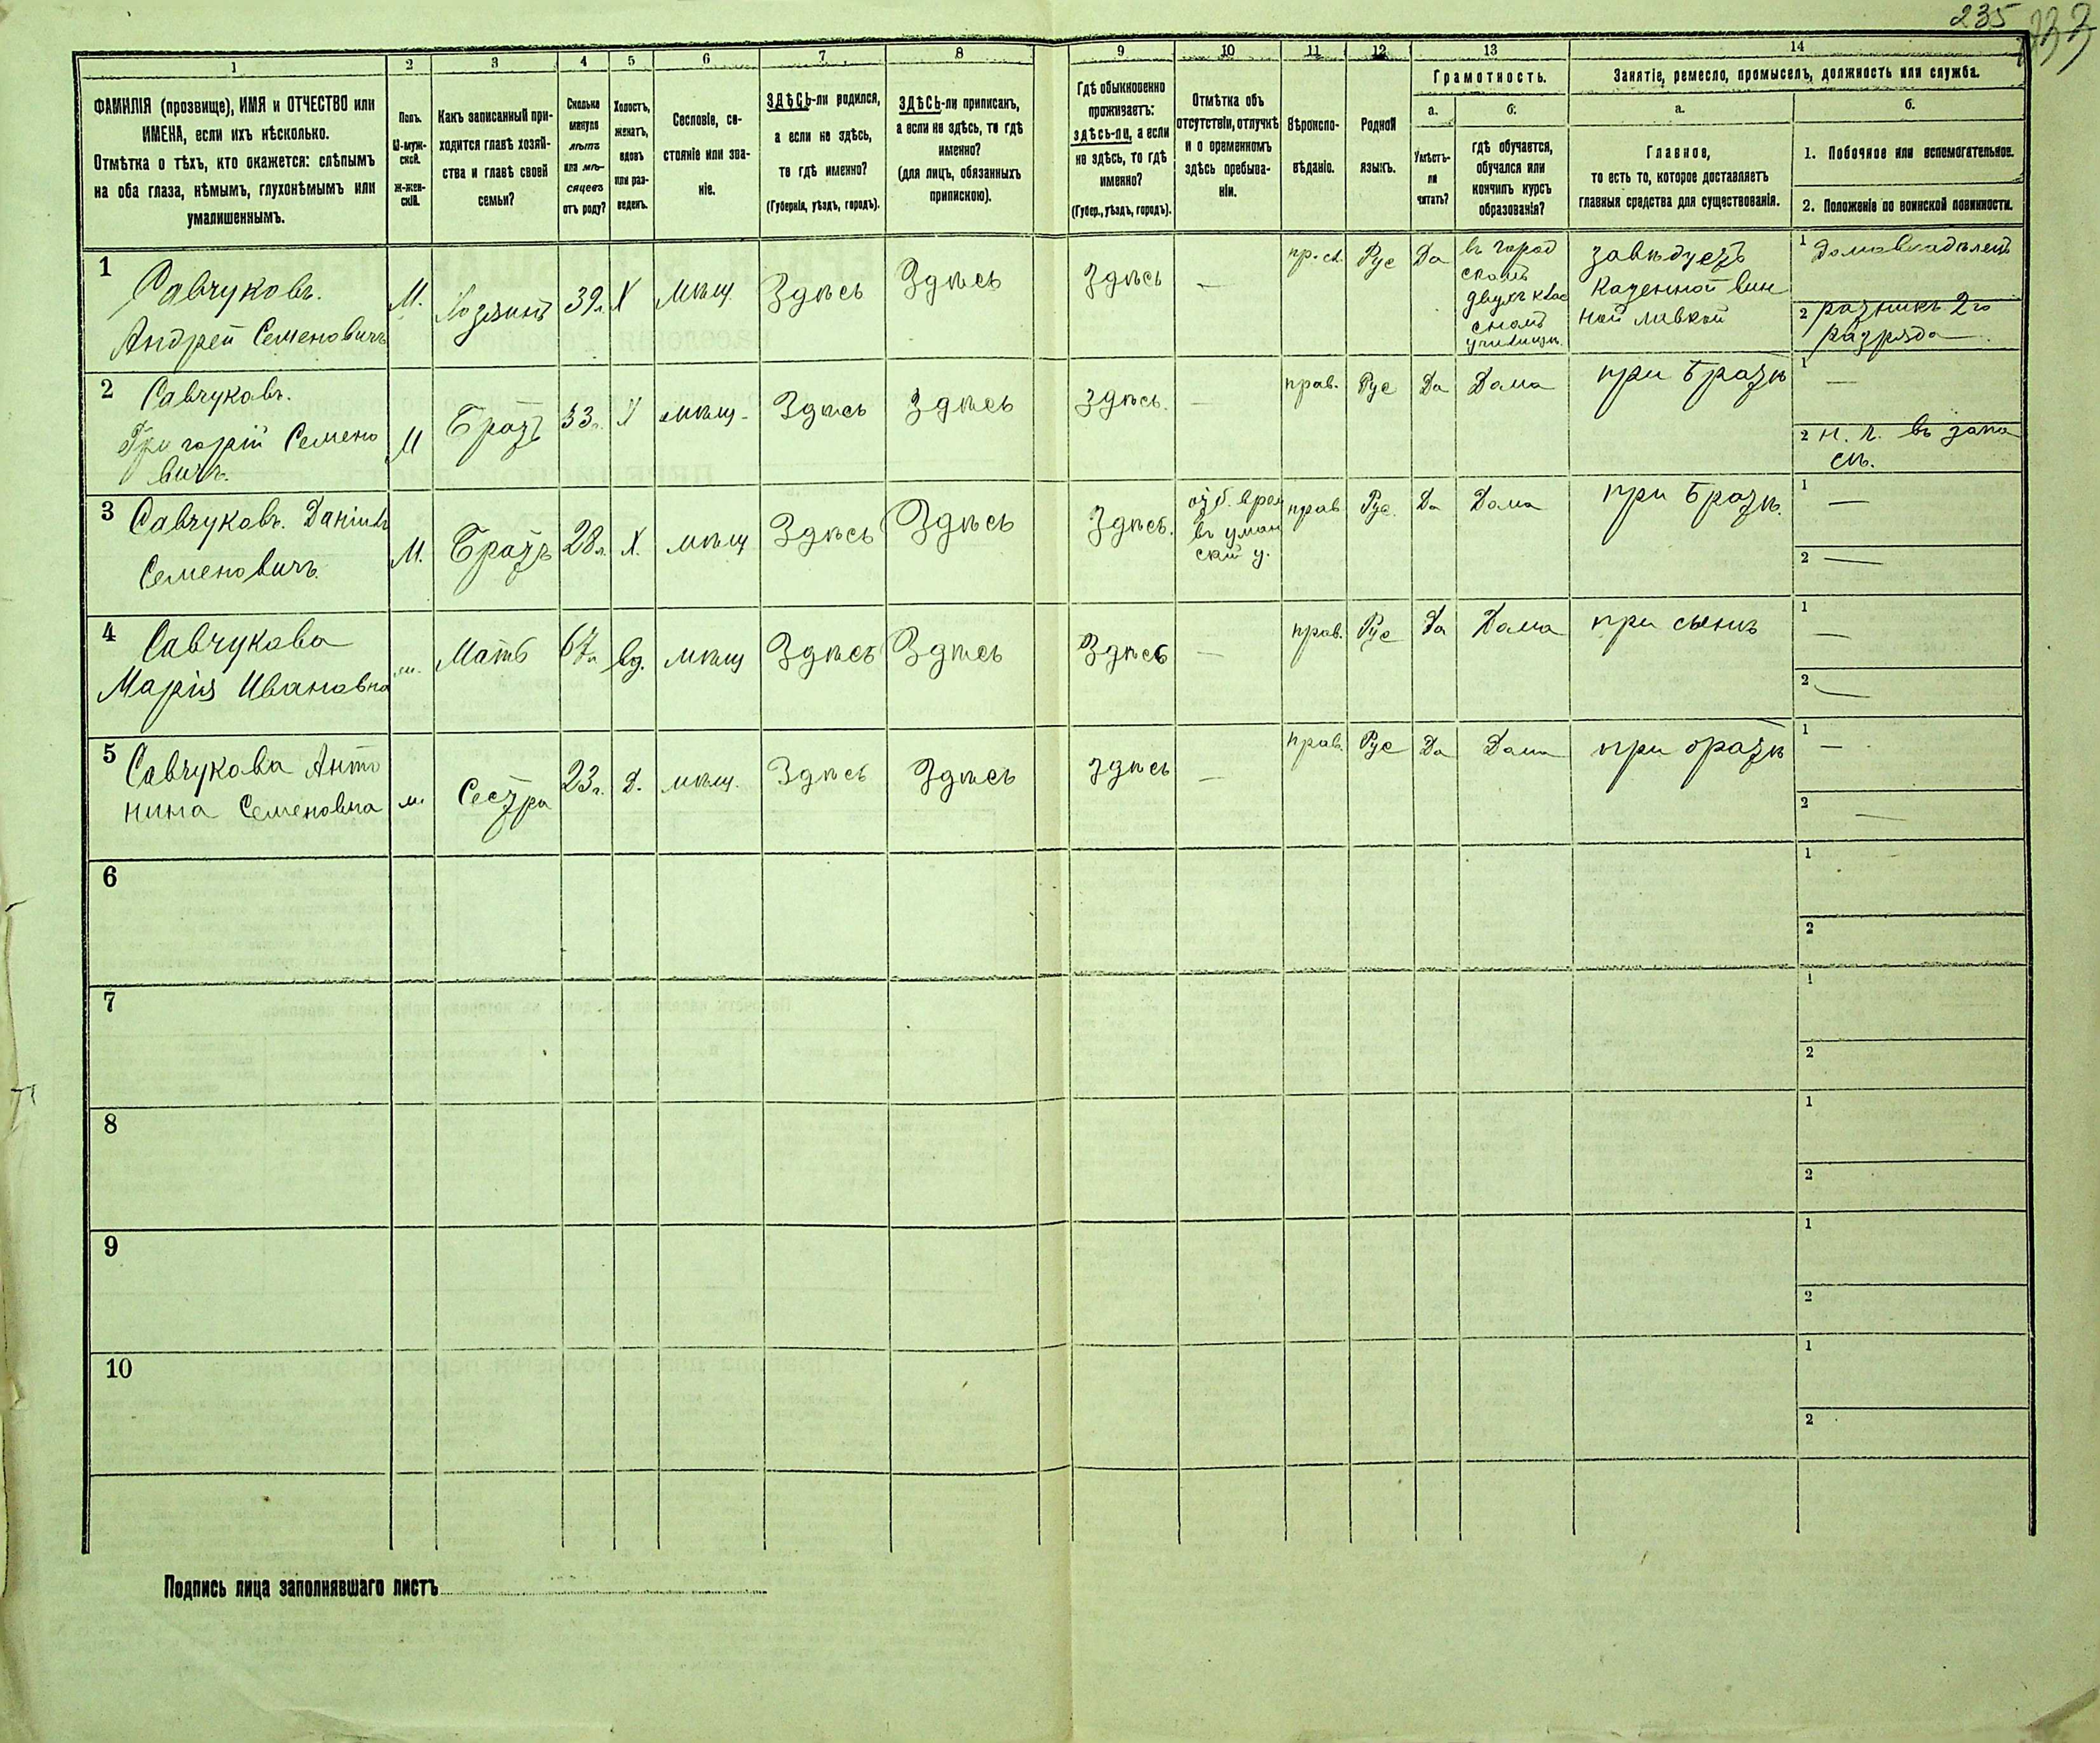 235
1 2 3 4 5 6 7 8 9 10 11 12 13 14
ФАМИЛІЯ (прозвище), ИМЯ и ОТЧЕСТВО или
ИМЕНА, если ихъ нѣсколько.
Отмѣтка о тѣхъ, кто окажется: слѣпымъ
на оба глаза, нѣмымъ, глухонѣмымъ или
умалишеннымъ.
Полъ.
М-муж-
ской.
Ж-жен-
скій.
Какъ записанный при-
ходится главѣ хозяй-
ства и главѣ своей
семьи?
Сколько
минуло
лѣтъ
или мѣ-
сяцевъ
отъ роду?
Холостъ,
женатъ,
вдовъ
или раз-
веденъ.
Сословіе, со-
стояніе или зва-
ніе.
ЗДѢСЬ-ли родился,
а если не здѣсь,
то гдѣ именно?
(Губернія, уѣздъ, городъ).
ЗДѢСЬ-ли приписанъ,
а если не здѣсь, то гдѣ
именно?
(для лицъ, обязанныхъ
припискою).
Гдѣ обыкновенно
проживаетъ:
здѣсь-ли, а если
не здѣсь, то гдѣ
именно?
(Губер., уѣздъ, городъ).
Отмѣтка объ
отсутствіи, отлучкѣ
и о временномъ
здѣсь пребыва-
ніи.
Вѣроиспо-
вѣданіе.
Родной
языкъ.
Грамотность.
а.
Умѣетъ-
ли
читать?
б.
гдѣ обучается,
обучался или
кончилъ курсъ
образованія?
Занятіе, ремесло, промыселъ, должность или служба.
а.
Главное,
то есть то, которое доставляетъ
главныя средства для существованія.
б.
1. Побочное или вспомогательное.
2. Положеніе по воинской повинности.
1
Савчуковъ.
Андрей Семеновичъ
М.
Хозяинъ
39 л.
Х
мѣщ.
Здѣсь
Здѣсь
Здѣсь
—
Рус
Да
въ город
скомъ
двухъ клас
сномъ
училищѣ
завѣдуетъ
казенной вин
ной лавкой
1 домовладѣлецъ
2 ратникъ 2го
разряда
2
Савчуковъ.
Григорій Семено
вичъ.
М
Братъ
33 г.
Х
мѣщ.
Здѣсь
Здѣсь
Здѣсь.
—
прав.
Рус
Да
Дома
при братѣ
1 —
2 н. ч. въ запа
сѣ.
3
Савчуковъ. Даніилъ
Семеновичъ.
М.
Братъ
28 л.
Х.
мѣщ
Здѣсь
Здѣсь
Здѣсь.
въ уман
ский у.
прав
Рус.
Да
Дома
при братѣ.
1 —
2 —
4
Савчукова
Марія Ивановна
ж.
Мать
67 л
вд.
мѣщ
Здѣсь
Здѣсь
Здѣсь
—
прав.
Рус
Да
Дома
при сынѣ
1 —
2 —
5
Савчукова Анто
нина Семеновна
ж.
Сестра
23 г.
Д.
мѣщ.
Здѣсь
Здѣсь
здѣсь
—
прав.
Рус
Да
Дома
при братѣ
1 —
2 —
6
1
2
7
1
2
8
1
2
9
1
2
10
1
2
Подпись лица заполнявшаго листъ